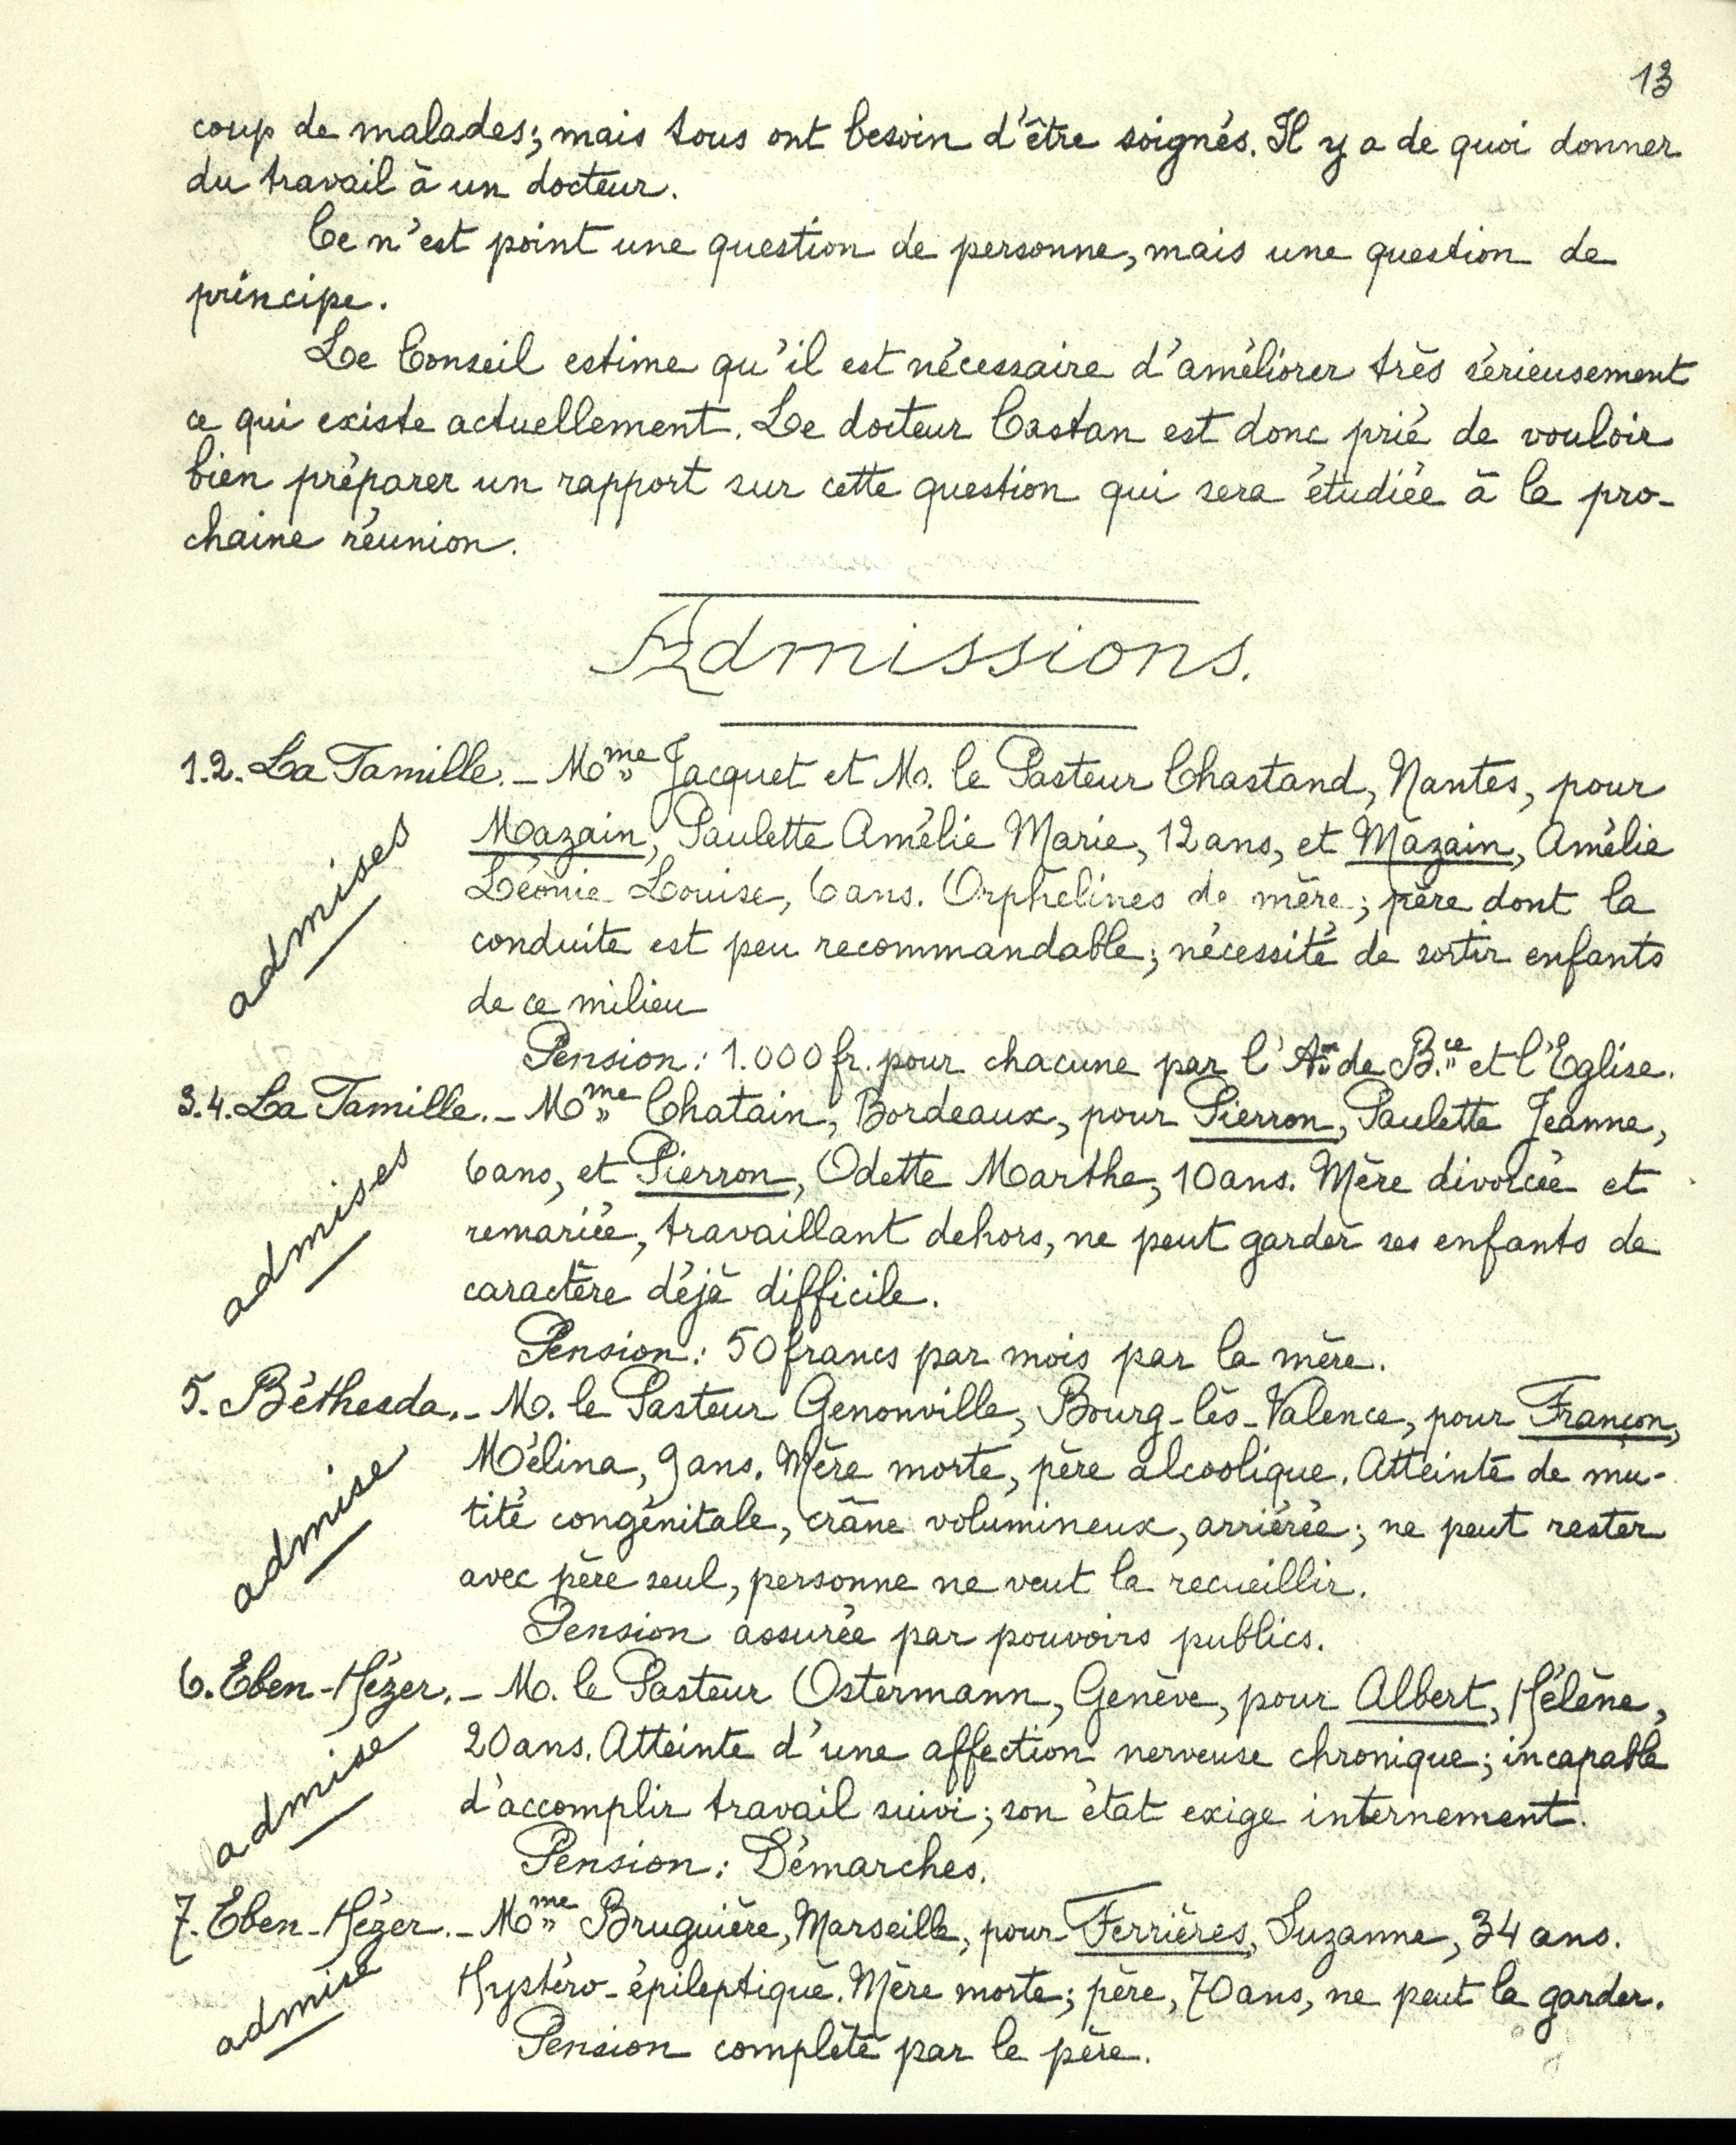 13
coup de malades; mais tous ont besoin d'être soignés. Il y a de quoi donner
du travail à un docteur.
Ce n'est point une question de personne, mais une question de
principe.
Le Conseil estime qu'il est nécessaire d'améliorer très sérieusement
ce qui existe actuellement. Le docteur Castan est donc prié de vouloir
bien préparer un rapport sur cette question qui sera étudiée à la pro-
chaine réunion.
Admissions.
1.2. La Famille. - Mme Jacquet et M. le Pasteur Chastand, Nantes, pour
Mazain, Paulette Amélie Marie, 12 ans, et Mazain, Amélie
Léonie Louise, 6 ans. Orphelines de mère; père dont la
conduite est peu recommandable; nécessité de sortir enfants
de ce milieu
admises
Pension: 1.000 fr. pour chacune par l'Aon de B.ce et l'Eglise.
3.4. La Famille. - Mme Chatain, Bordeaux, pour Pierron, Paulette Jeanne,
6 ans, et Pierron, Odette Marthe, 10 ans. Mère divorcée et
remariée, travaillant dehors, ne peut garder ses enfants de
caractère déjà difficile.
admises
Pension: 50 francs par mois par la mère.
5. Béthesda. - M. le Pasteur Genonville, Bourg-lès-Valence, pour Françon,
Mélina, 9 ans. Mère morte, père alcoolique. Atteinte de mu-
tité congénitale, crâne volumineux, arriérée; ne peut rester
avec père seul, personne ne veut la recueillir.
admise
Pension assurée par pouvoirs publics.
6. Eben-Hézer. - M. le Pasteur Ostermann, Genève, pour Albert, Hélène,
20 ans. Atteinte d'une affection nerveuse chronique; incapable
d'accomplir travail suivi; son état exige internement.
admise
Pension: Démarches.
7. Eben-Hézer. - Mme Bruguière, Marseille, pour Ferrières, Suzanne, 34 ans.
Hystéro-épileptique. Mère morte; père, 70 ans, ne peut la garder.
admise
Pension complète par le père.